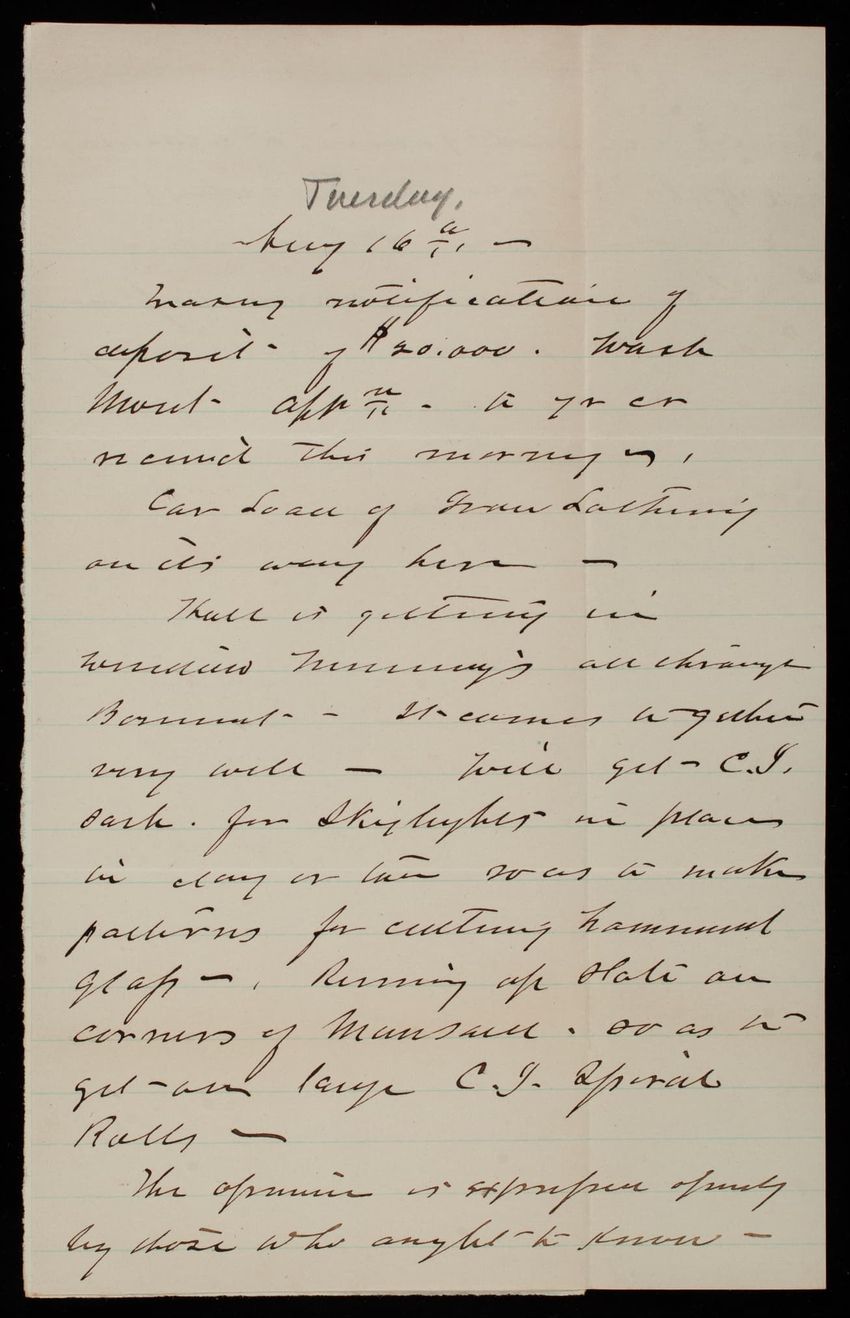 Tuesday.
Aug 16th —
notification of
deposit of $20.000. Wash
Mont appn - to yr cr
received this morning,
Car Load of Iron Lathing
on its way here —
Hall is getting in
window all through
Basement - It comes together
very well — Will get C.I.
sash. for Skylights in place
in day or two so as to make
patterns for cutting hammered
glass —. Running up Slate on
corners of Mansard. so as to
get on large C.I. Spiral
Rolls —
The opinion is expressed openly
by those who aught to know —